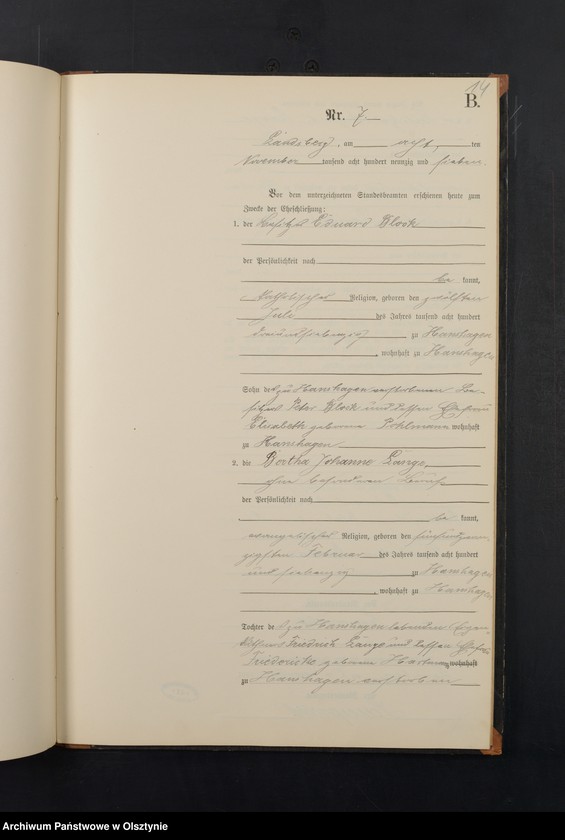 14
B.
Nr. 7
Landsberg, am acht ten
November tausend acht hundert neunzig und sieben.
Vor dem unterzeichneten Standesbeamten erschienen heute zum
Zwecke der Eheschließung:
1. der Besitzer Eduard Block
der Persönlichkeit nach
be kannt,
katholischer Religion, geboren den zwölften
Juli des Jahres tausend acht hundert
zu Hanshagen
, wohnhaft zu Hanshagen
Sohn des zu Hanshagen verstorbenen Be-
sitzers Peter Block und dessen Ehefrau
Elisabeth geborene Pohlmann wohnhaft
zu Hanshagen
2. die Bertha Johanne Lange,
ohne besonderen Beruf
der Persönlichkeit nach
be kannt,
evangelischer Religion, geboren den fünfundzwan-
zigsten Februar des Jahres tausend acht hundert
und siebenzig zu Hanshagen
, wohnhaft zu Hanshagen
Tochter des zu Hanshagen lebenden Eigen-
käthners Friedrich Lange und dessen Ehefrau
Friederike geborene Hartmann wohnhaft
zu Hanshagen verstorben
Archiwum Państwowe w Olsztynie